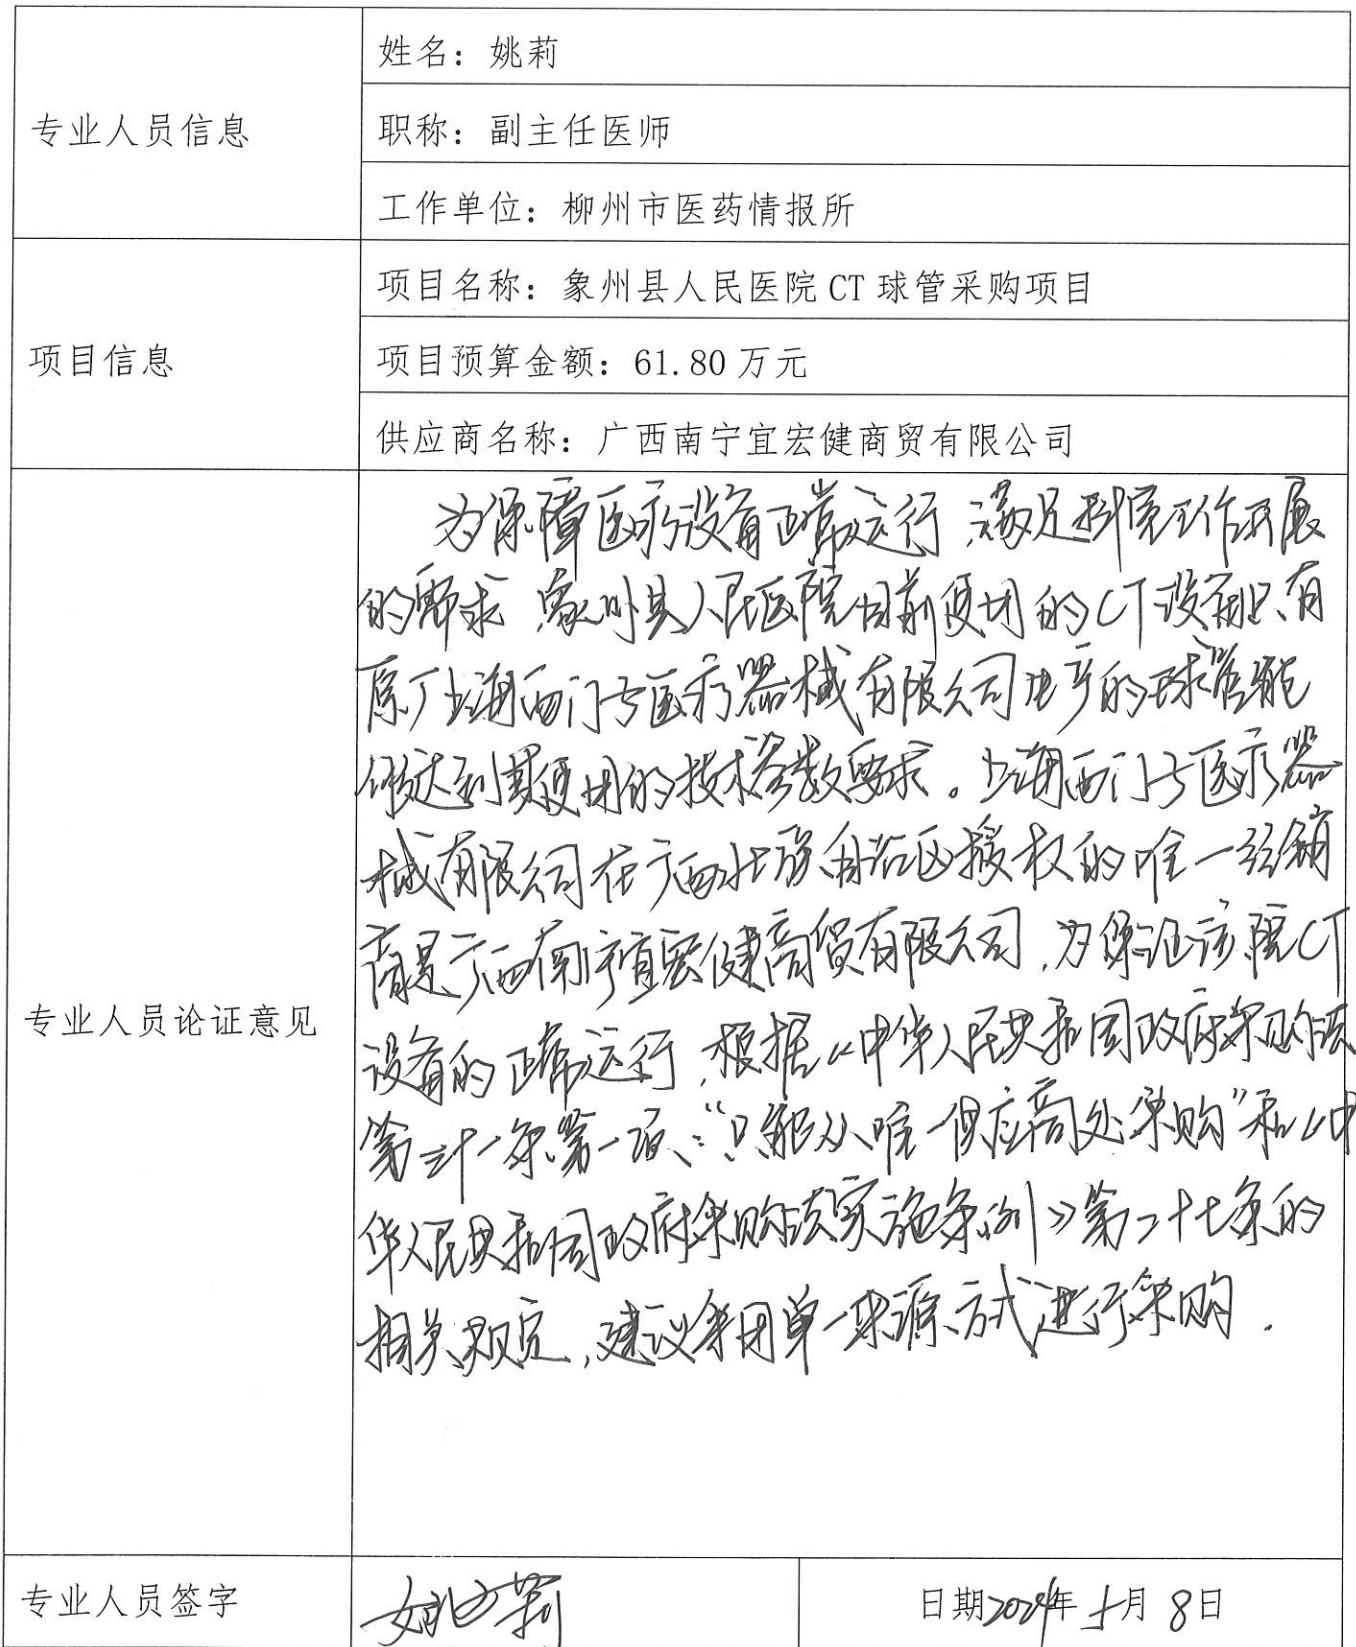 专业人员信息
姓名：姚莉
职称：副主任医师
工作单位：柳州市医药情报所
项目信息
项目名称：象州县人民医院 CT 球管采购项目
项目预算金额：61.80 万元
供应商名称：广西南宁宜宏健商贸有限公司
专业人员论证意见
为保障医疗设备正常运行,满足科室工作开展
的需求,象州县人民医院目前使用的CT设备只有
原厂上海西门子医疗器械有限公司生产的球管能
够达到其使用的技术参数要求。上海西门子医疗器
械有限公司在广西壮族自治区授权的唯一经销
商是广西南宁宜宏健商贸有限公司,为保证该院CT
设备的正常运行,根据《中华人民共和国政府采购法
第三十一条第一项:“只能从唯一供应商处采购”和《中
华人民共和国政府采购法实施条例》第二十七条的
相关规定,建议采用单一来源方式进行采购.
专业人员签字
姚莉
日期2024年5月8日